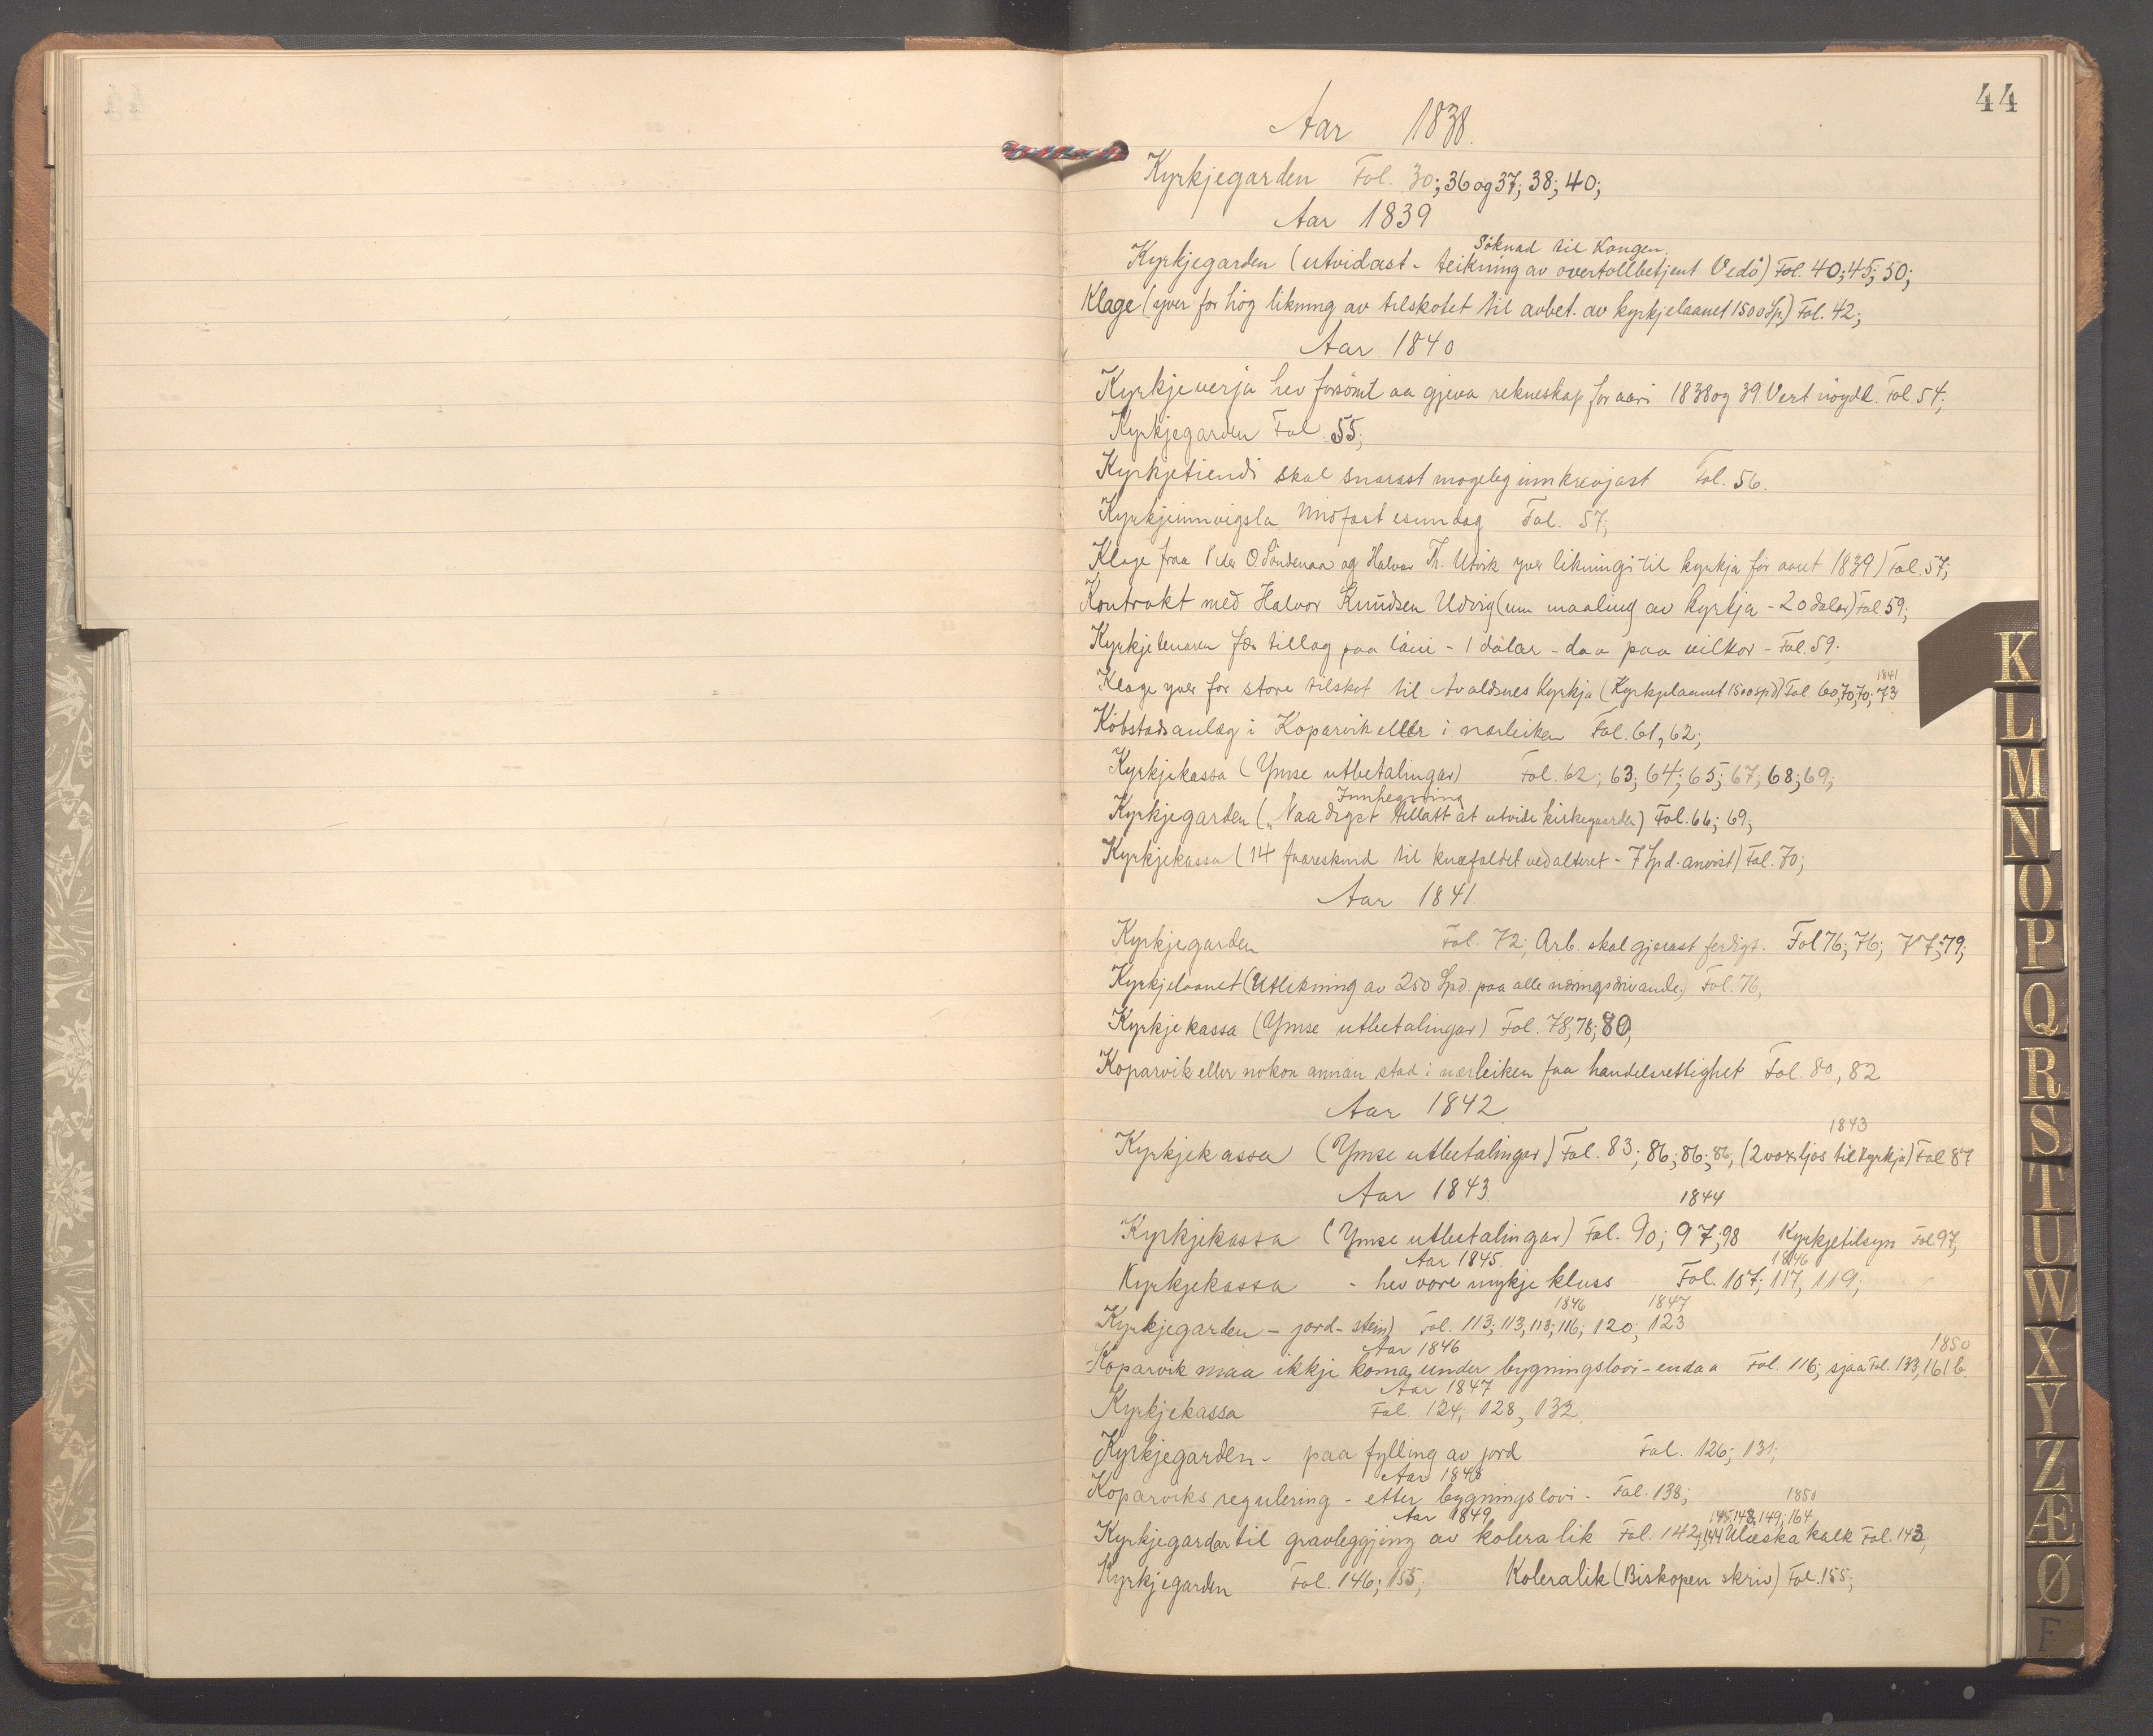 44
Aar 1838.
Kyrkjegarden Fol. 30; 36 og 37; 38; 40;
Aar 1839
Söknad til Kongen
Kyrkjegarden (utvidast - teikning av overtollbetjent Vedö) Fol. 40; 45; 50;
Klage (yver for hög likning av tilskotet til avbet. av kyrkjelaanet 1500 Sp.) Fol. 42;
Aar 1840
Kyrkjeverja hev forsömt aa gjeva rekneskap for aari 1838 og 39. Vert nöydd. Fol. 54;
Kyrkjegarden Fol. 55;
Kyrkjetiendi skal snarast mogeleg innkrevjast Fol. 56.
Kyrkjeinnvigsla Midfastesundag Fol. 57;
Klage fraa Peder O. Söndenaa og Halvor Th. Utvik yver likningi til kyrkja for aaret 1839) Fol. 57;
Kontrakt med Halvor Knudsen Udvig (um maaling av kyrkja - 20 dalar) Fol 59;
Kyrkjetenaren fær tillag paa löni - 1 dalar - daa paa vilkor - Fol. 59;
1841
Klage yver for store tilskot til Avaldsnes Kyrkja (Kyrkjelaanet 1500 spd) Fol 60, 70, 70; 73
Köbstadsanlæg i Koparvik eller i nærleiken Fol. 61, 62;
Kyrkjekassa (Ymse utbetalingar) Fol. 62; 63; 64; 65; 67; 68; 69;
Innhegning
Kyrkjegarden („Naadigst tillatt at utvide kirkegaarden) Fol. 66; 69;
Kyrkjekassa (14 faareskind til knæfaldet ved alteret - 7 Spd. anvist) Fol. 70;
Aar 1841.
Kyrkjegarden Fol. 72; Arb. skal gjerast ferdigt. Fol 76; 76; 77; 79;
Kyrkjelaanet (Utlikning av 250 Spd. paa alle næringsdrivande) Fol. 76,
Kyrkjekassa (Ymse utbetalingar) Fol. 78; 78; 80,
Koparvik eller nokon annan stad i nærleiken faa handelsrettighet Fol. 80, 82
Aar 1842
1843
Kyrkjekassa (Ymse utbetalingar) Fol. 83; 86; 86; 86; (2 voxljos til kyrkja) Fol 87
Aar 1843
1844
Kyrkjekassa (Ymse utbetalingar) Fol. 90; 97; 98 Kyrkjetilsyn Fol. 97,
Aar 1845. 1846
Kyrkjekassa - hev vore mykje kluss Fol. 107; 117, 119;
1846 1847
Kyrkjegarden - jord - stein) Fol. 113; 113, 113; 116; 120; 123
Aar 1846 1850
Koparvik maa ikkje koma under bygningslovi - endaa Fol. 116; sjaa Fol. 133, 161 b.
Aar 1847
Kyrkjekassa Fol. 124; 128, 132
Kyrkjegarden - paa fylling av jord Fol. 126; 131;
Aar 1848
Koparviks regulering - etter bygningslovi - Fol. 138;
Aar 1849 1850
145, 148, 149; 164
Kyrkjegardar til gravleggjing av kolera lik Fol. 142, 144 Ulæska kalk Fol. 143,
Kyrkjegarden Fol. 146; 155; Koleralik (Biskopen skriv) Fol. 155;
K
L
M
N
O
P
Q
R
S
T
U
W
X
Y
Z
Æ
Ø
F